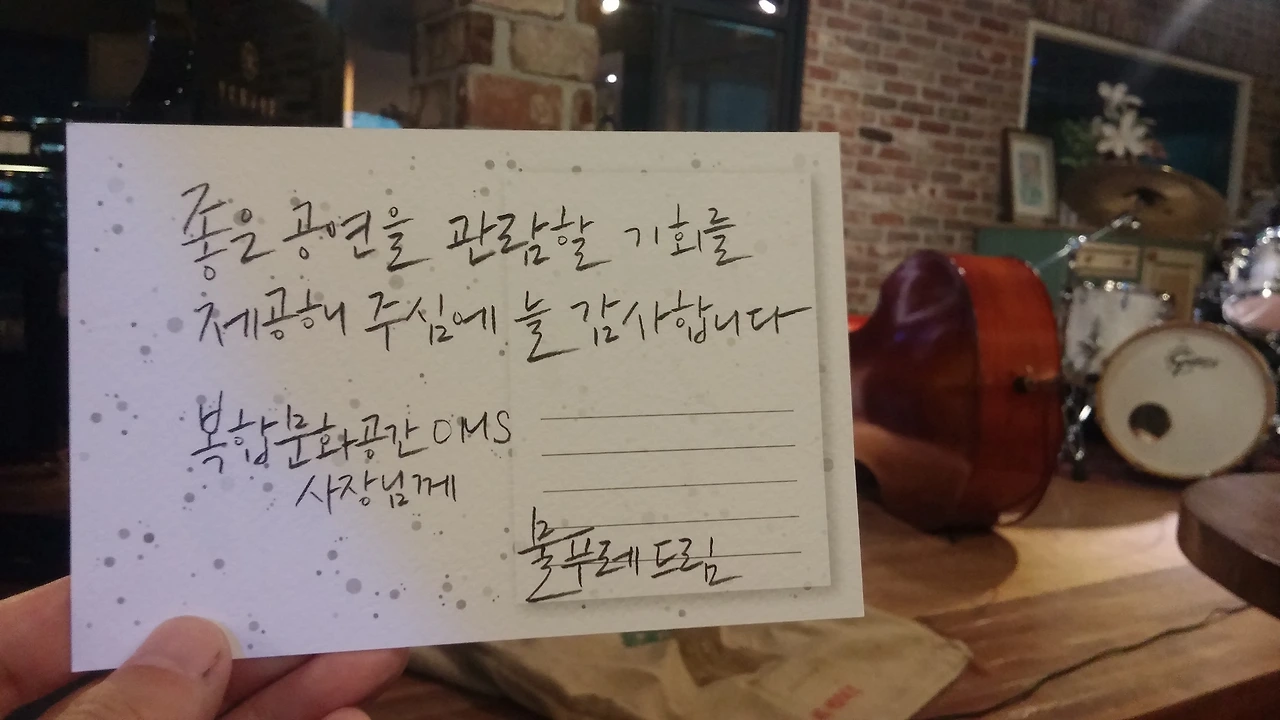 좋은 공연을 관람할 기회를
제공해 주심에 늘 감사합니다
복합문화공간 OMS
사장님께
불부레 드림
Gretsch